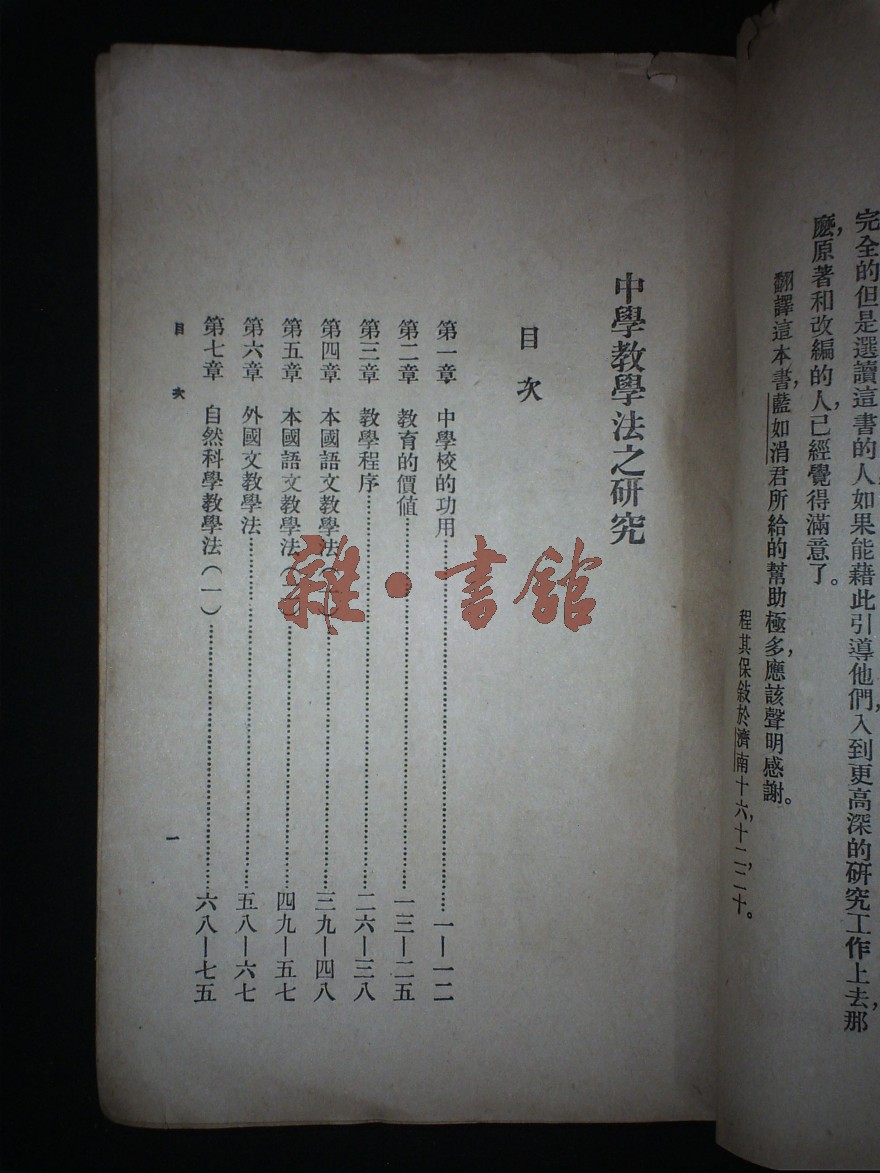 完全的但是選讀這書的人如果能藉此引導他們入到更高深的研究工作上去,那
麽,原著和改編的人,已經覺得滿意了。
翻譯這本書,藍如涓君所給的幫助極多,應該聲明感謝。
程其保敍於濟南十六,十二,二十。
中學教學法之研究
目次
第一章 中學校的功用……一—一二
第二章 教育的價値……一三—二五
第三章 教學程序……二六—三八
第四章 本國語文教學法(一)……三九—四八
第五章 本國語文教學法(二)……四九—五七
第六章 外國文教學法……五八—六七
第七章 自然科學教學法(一)……六八—七五
目次
一
雜·書館